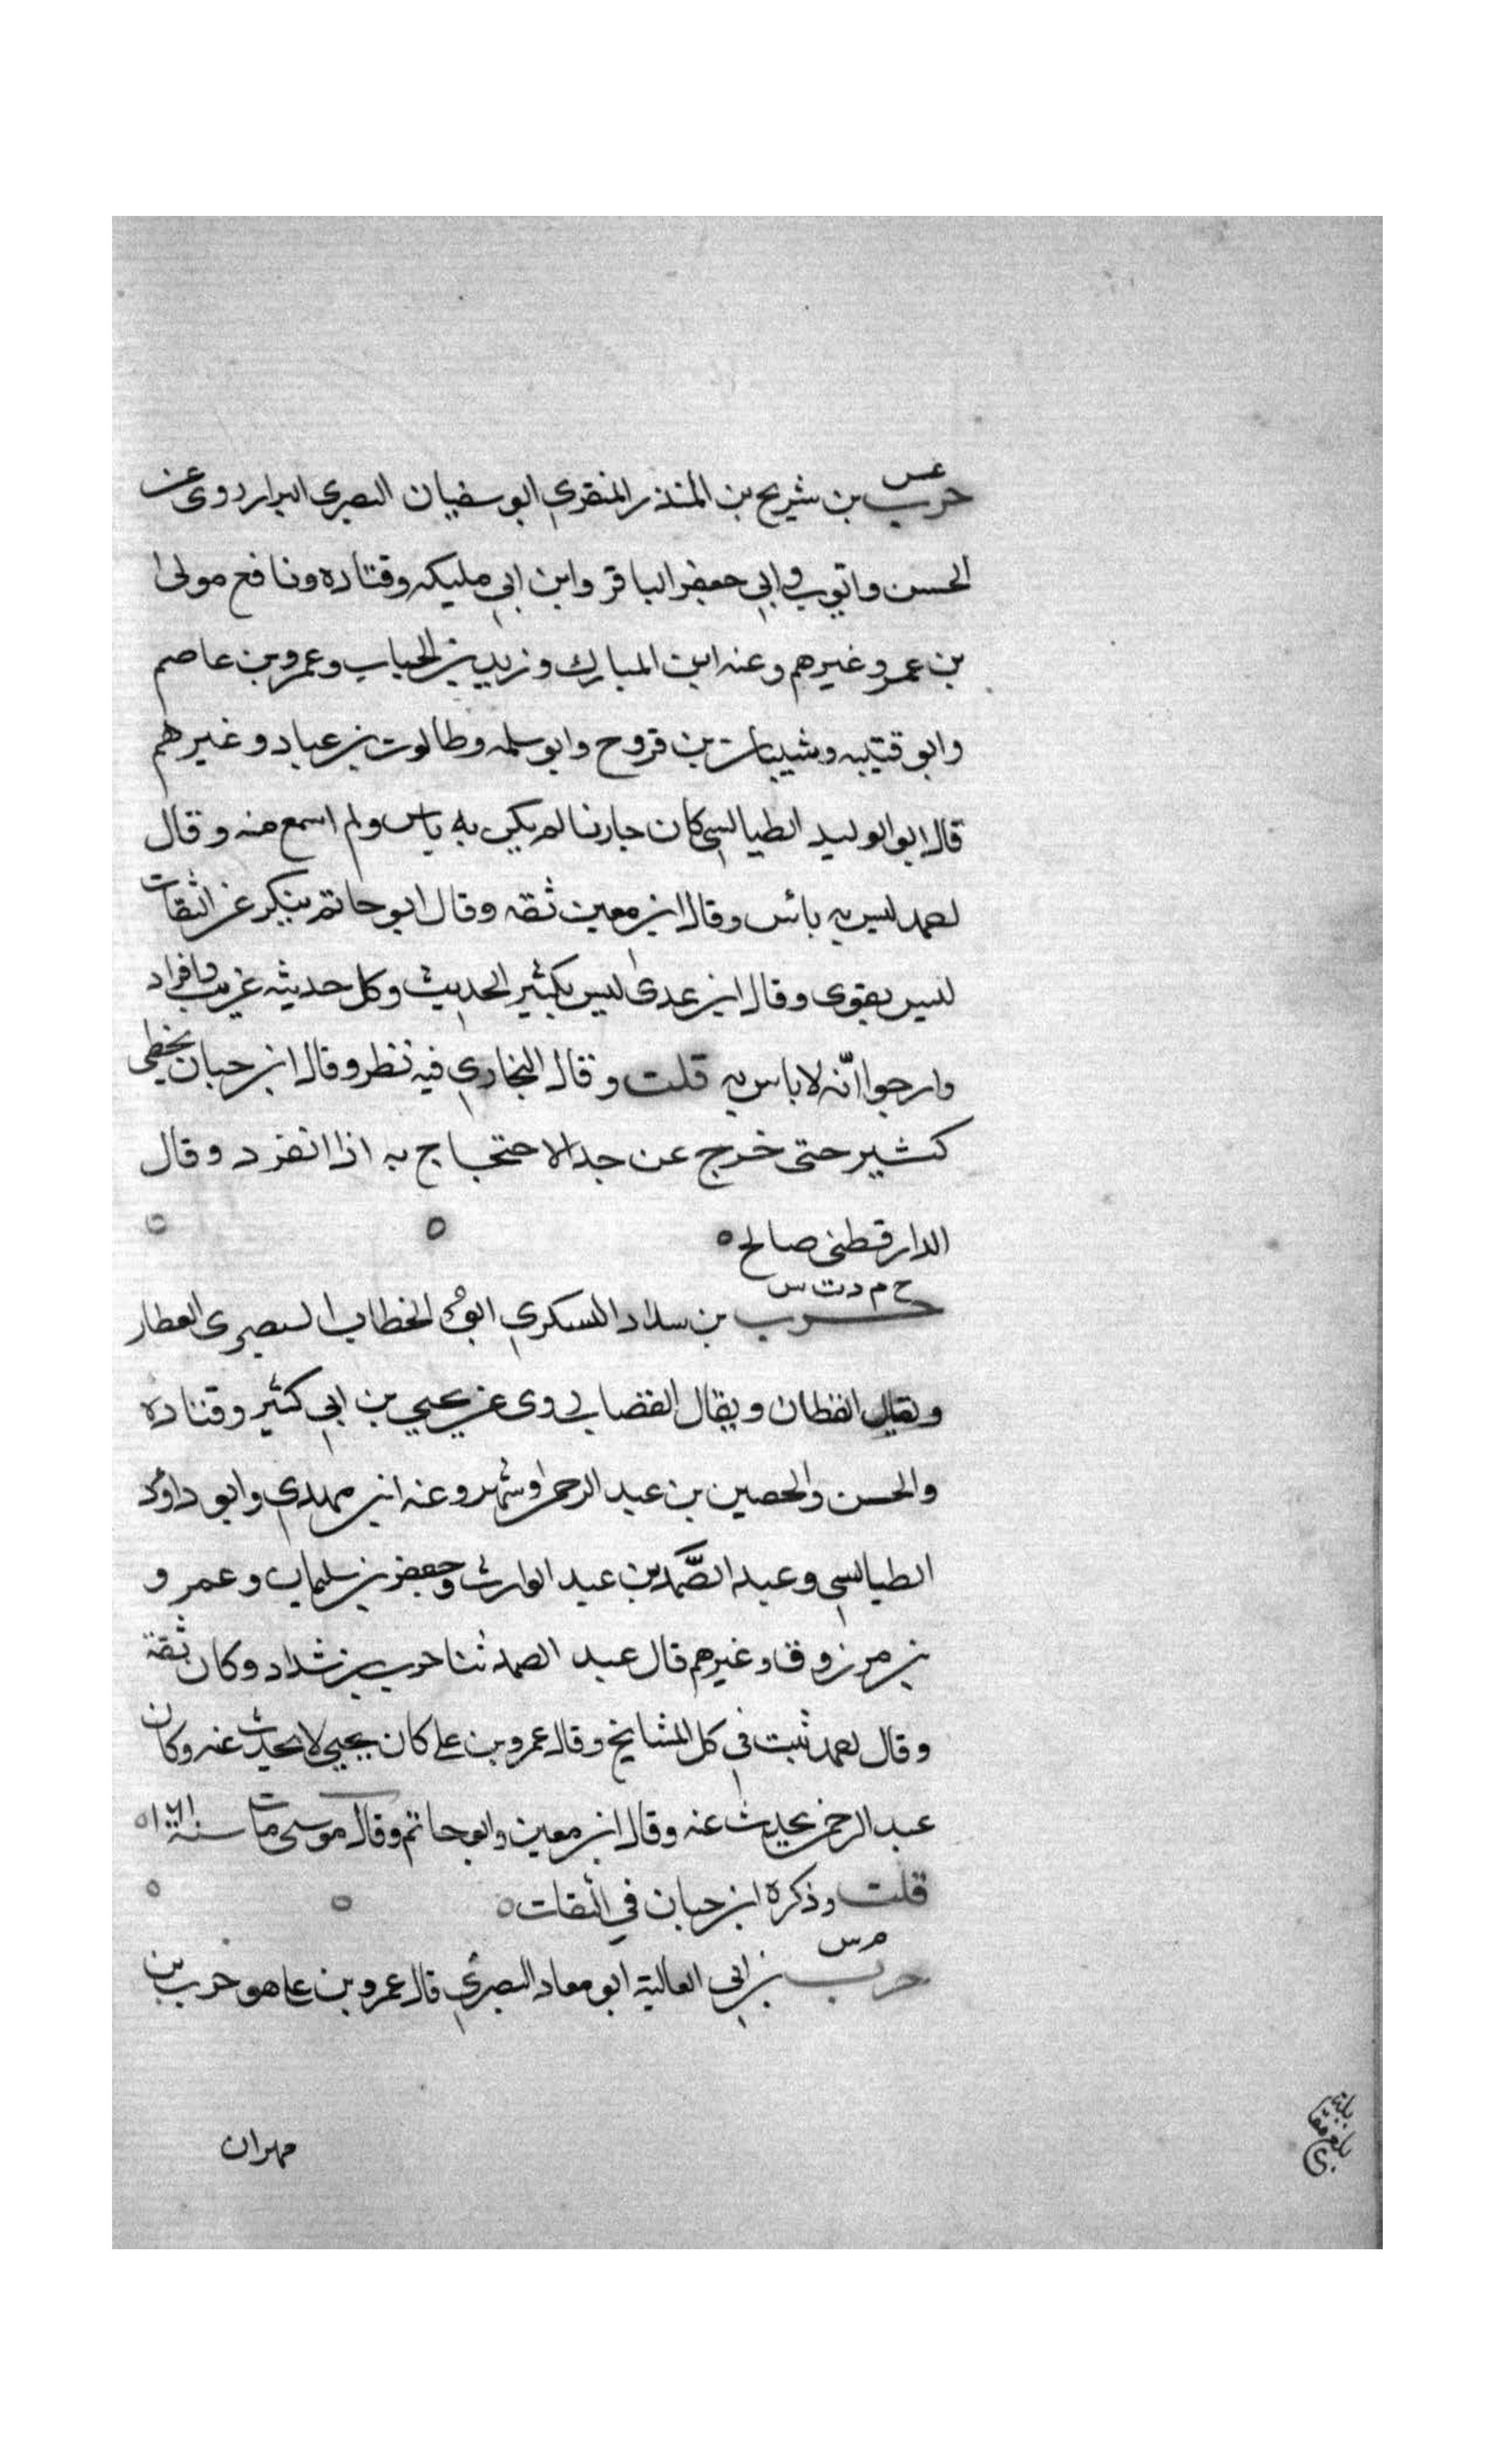 عس
حرب بن شريح بن المنذر المنقري ابو سفيان البصري البزار روى عن
الحسن وايوب وابي جعفر الباقر وابن ابي مليكه وقتاده ونافع مولى ا
بن عمر وغيرهم وعنه ابن المبارك وزيد بن الحباب وعمرو بن عاصم
وابو قتيبه وشيبان بن فروح وابو سلمه وطالوت بن عباد وغيرهم
قال ابو الوليد الطيالسي كان جارنا لم يكن به باس ولم اسمع منه وقال
احمد ليس به بائس وقال ابن معين ثقه وقال ابو حاتم ينكر عن الثقات
ليس بقوى وقال ابن عدى ليس بكثير الحديث وكل حديثه غريب وافراد
وارجوا انّه لا باس به قلت وقال البخاري فيه نظر وقال ابن حبان يخطى
كثير حتى خرج عن حد الاحتجاج به اذا انفرد وقال
الدارقطنى صالح ه
خ م د ت س
حرب بن سداد اليسكري ابو الخطاب البصرى العطار
ويقال القطان ويقال القصاب روى عن يحيي بن ابي كثير وقتاده
والحسن والحصين بن عبد الرحمن وشهر وعنه ابن مهدي وابو داؤد
الطيالسي وعبد الصَّمد بن عبد الوارث وجعفر بن سليمان وعمر و
بن مرزوق وغيرهم قال عبد الصمد ثنا حرب بن شداد وكان ثقة
وقال احمد ثبت في كل المشايخ وقال عمرو بن على كان يحيي لا يحدث عنه وكان
عبد الرحمن يحدث عنه وقال ابن معين وابو حاتم وقال موسى مات سنة ١٦١ ه
قلت وذكره ابن حبان في الثقات ه
م س
حرب بن ابي العالية ابو معاد البصري قال عمرو بن على هو حرب بن
مهران